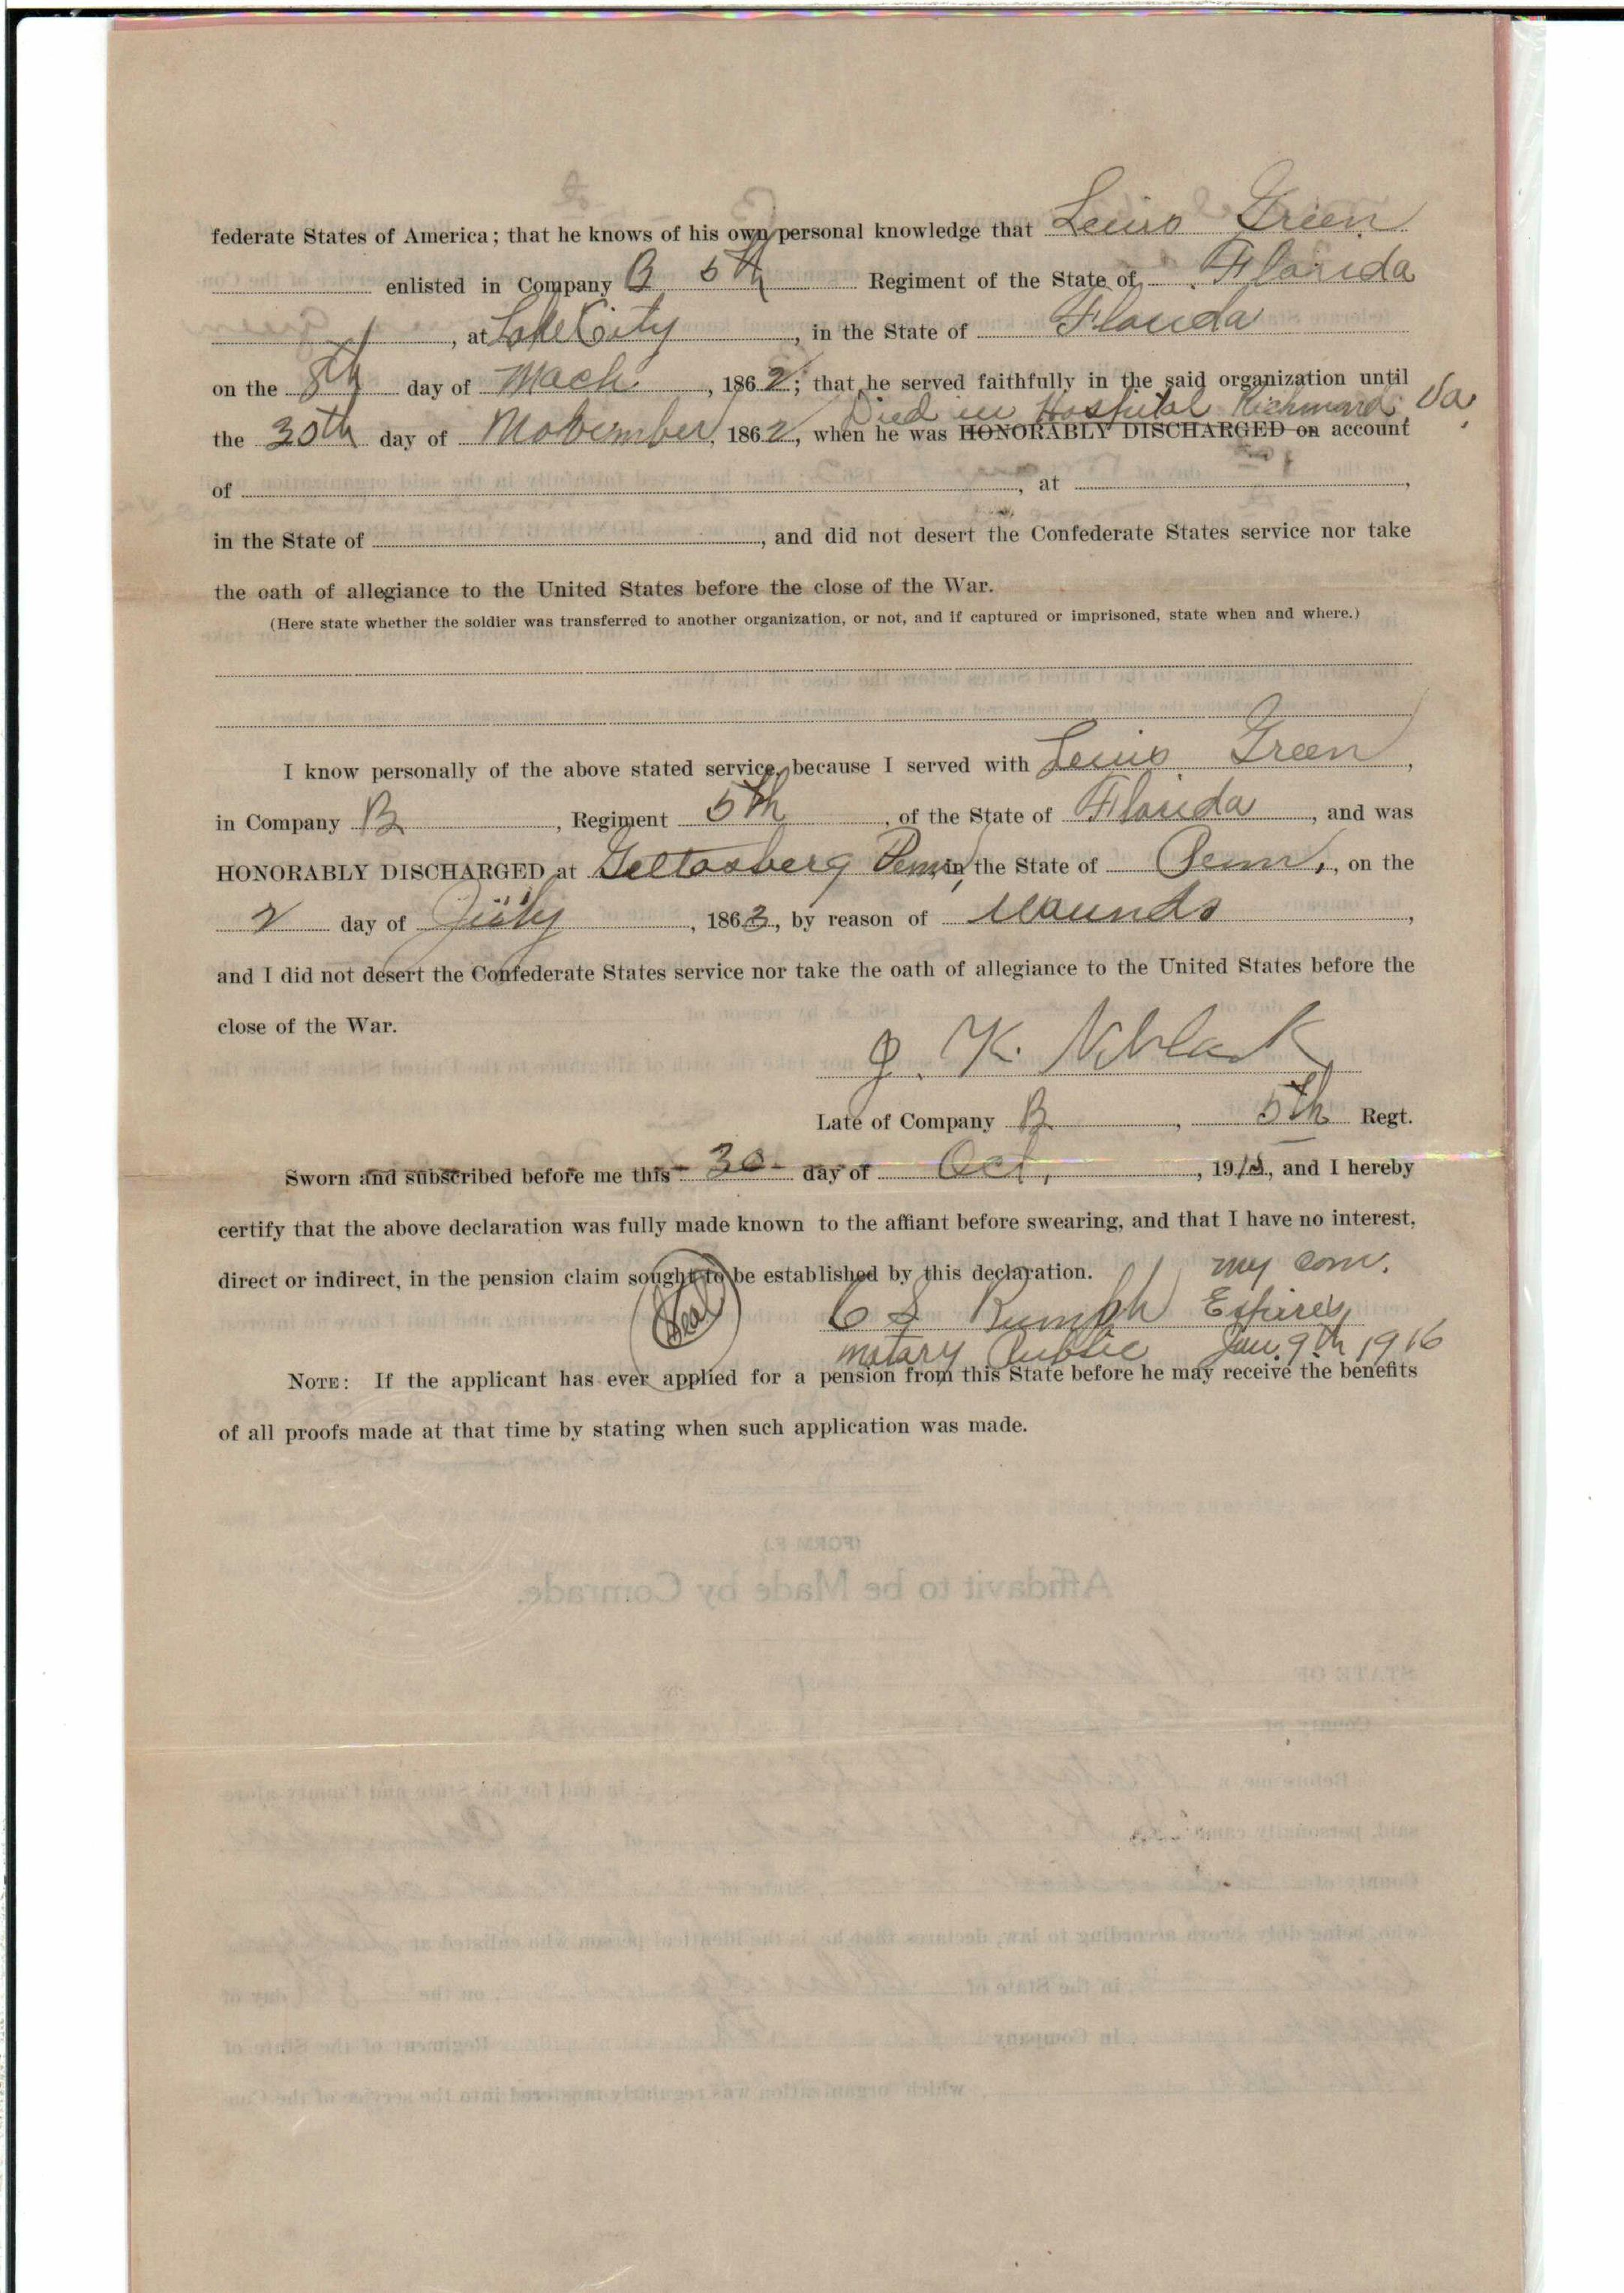 federate States of America; that he knows of his own personal knowledge that Lewis Green
enlisted in Company B 5th Regiment of the State of Florida
, at Lake City, in the State of Florida
on the 8th day of Mach, 1862; that he served faithfully in the said organization until
Died in Hospital Richmond Va.
the 30th day of November, 1862, when he was HONORABLY DISCHARGED on account
of , at ,
in the State of , and did not desert the Confederate States service nor take
the oath of allegiance to the United States before the close of the War.
(Here state whether the soldier was transferred to another organization, or not, and if captured or imprisoned, state when and where.)
I know personally of the above stated service, because I served with Lewis Green,
in Company B, Regiment 5th, of the State of Florida, and was
HONORABLY DISCHARGED at Gettosberg Penn, in the State of Penn., on the
2 day of July, 1863, by reason of Wounds,
and I did not desert the Confederate States service nor take the oath of allegiance to the United States before the
close of the War.
J. K. Niblack
Late of Company B, 5th Regt.
Sworn and subscribed before me this 30 day of Oct, 19, and I hereby
certify that the above declaration was fully made known to the affiant before swearing, and that I have no interest,
direct or indirect, in the pension claim sought to be established by this declaration.
my com.
(Seal) C S Rumph Expires
Notary Public Jan. 9th 1916
NOTE: If the applicant has ever applied for a pension from this State before he may receive the benefits
of all proofs made at that time by stating when such application was made.